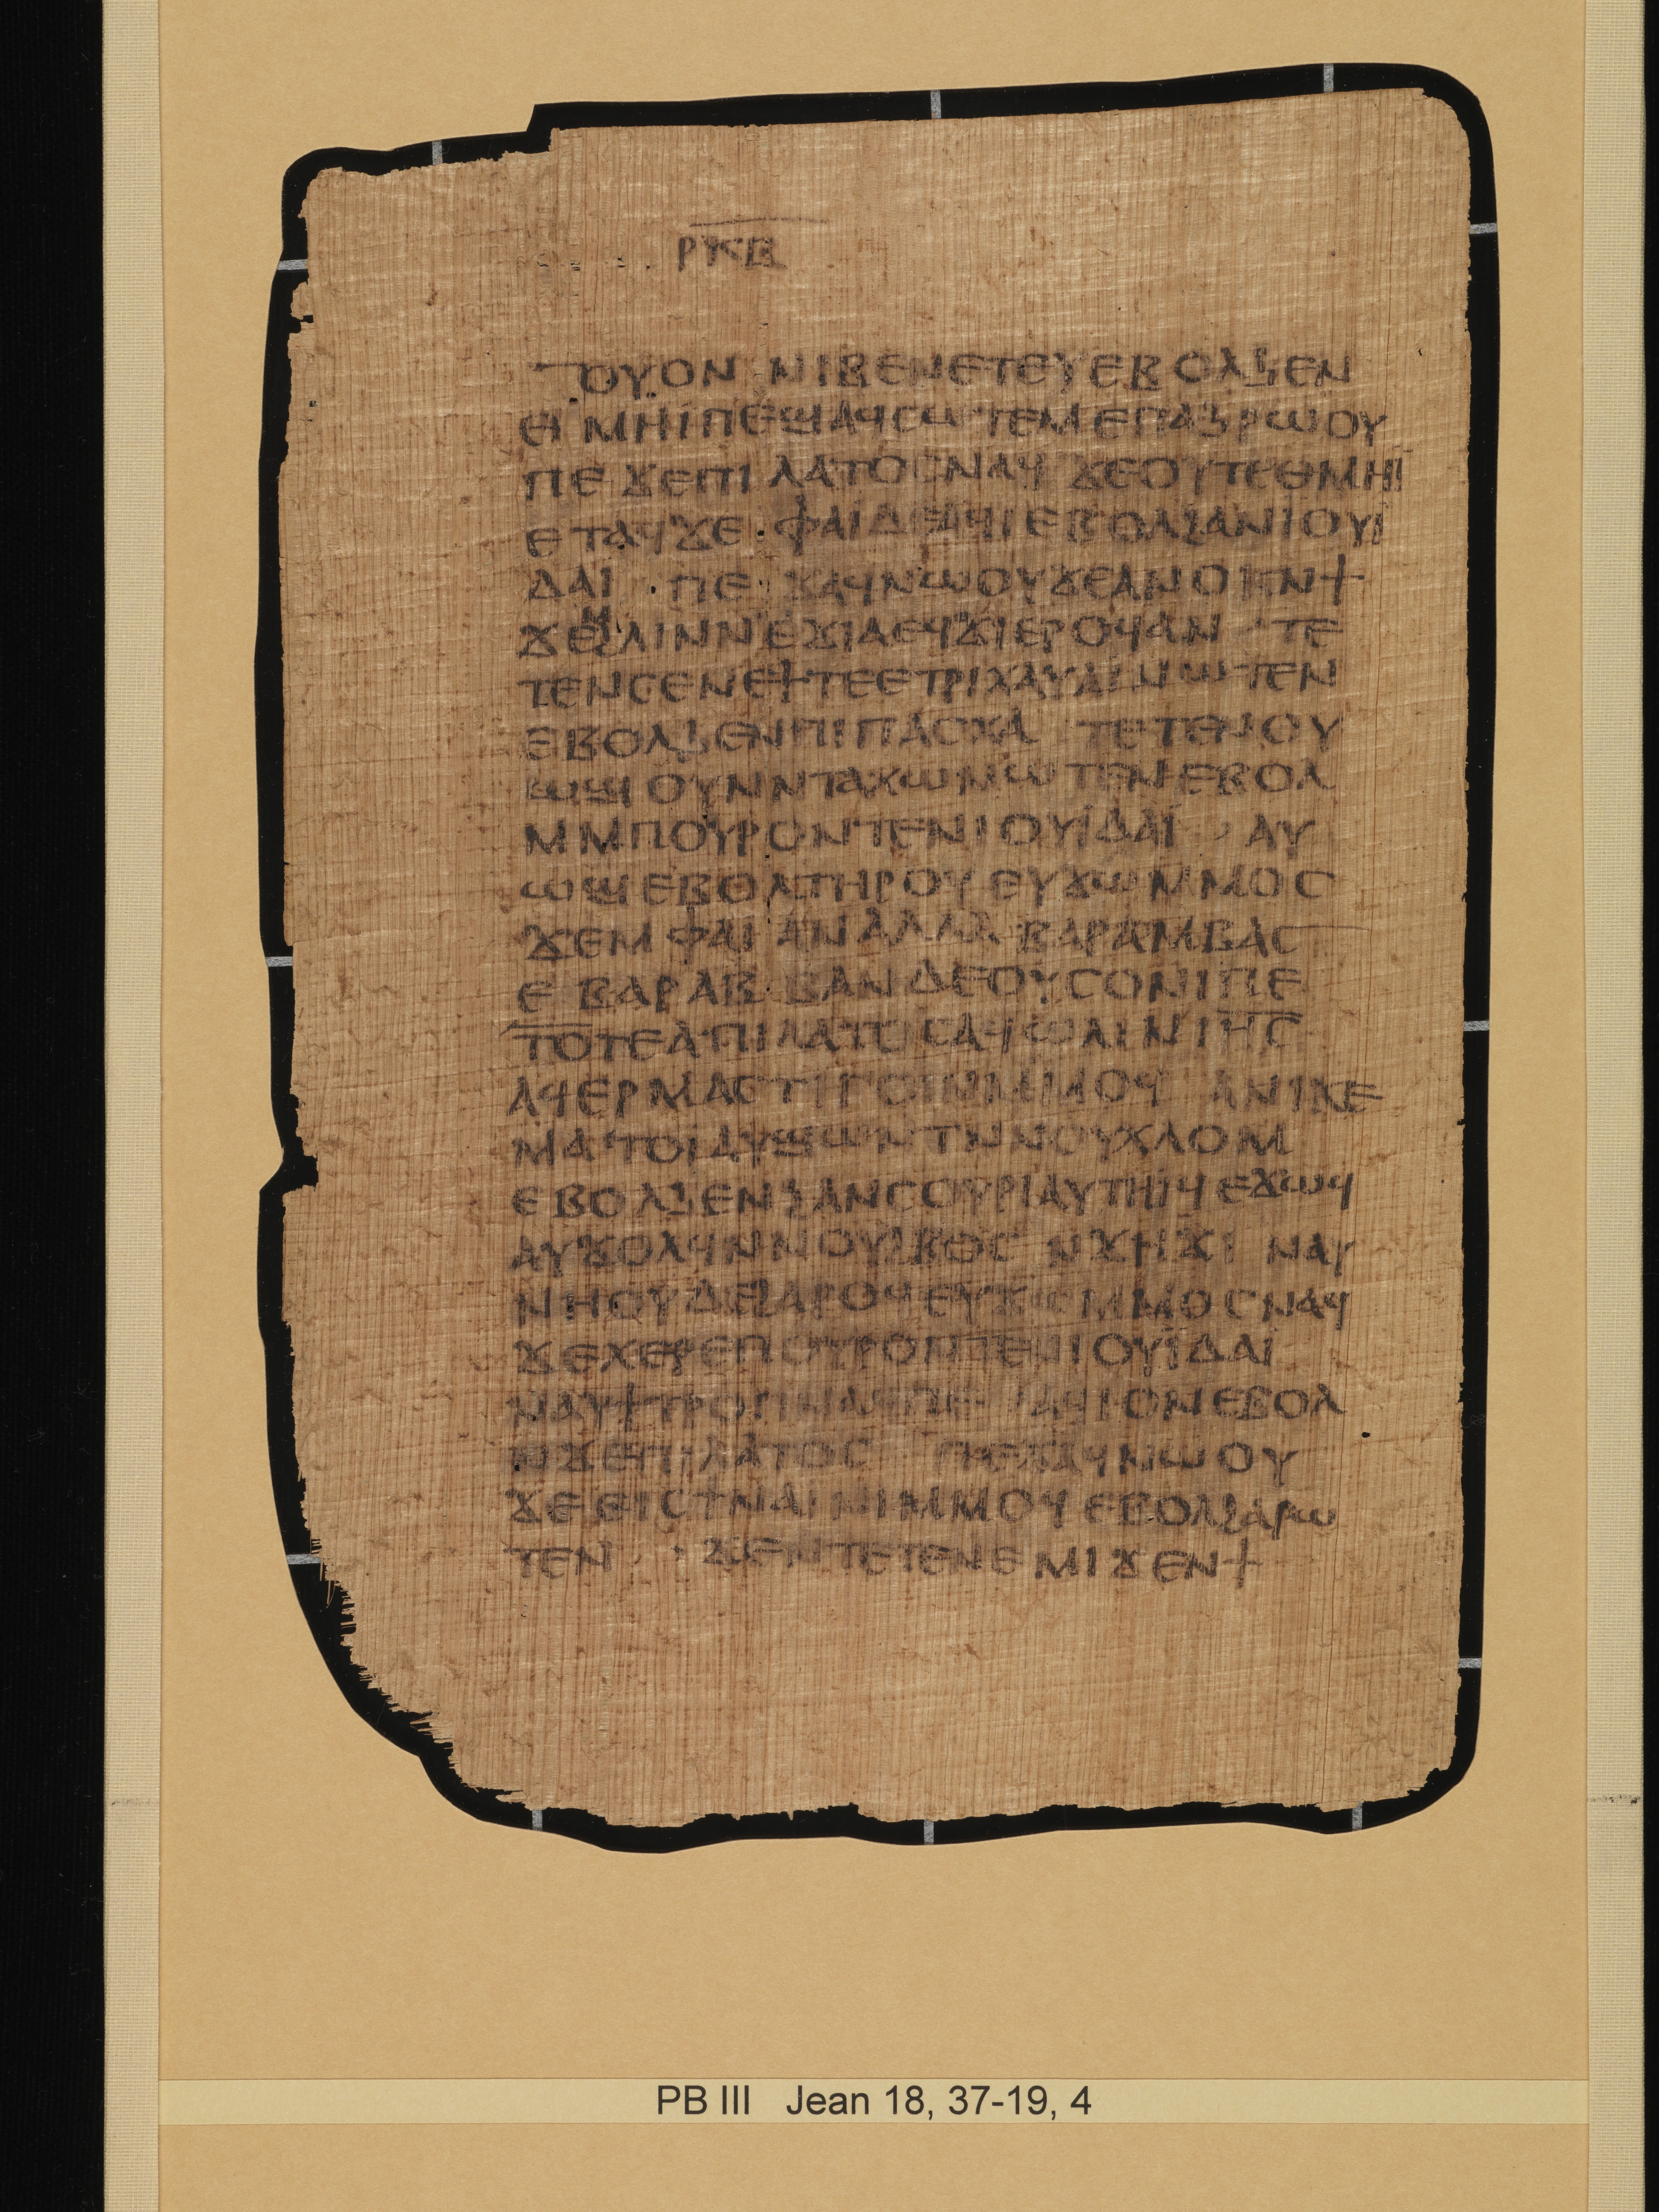 ⲣⲕⲃ
ⲟⲩⲟⲛ ⲛⲓⲃⲉⲛⲉⲧⲉⲩⲉⲃⲟⲗϧⲉⲛ
ⲑⲙⲏⲓⲡⲉϣⲁϥⲥⲱⲧⲉⲙⲉⲡⲁϧⲣⲱⲟⲩ
ⲡⲉϫⲉⲡⲓⲗⲁⲧⲟⲥⲛⲁϥ ϫⲉⲟⲩⲧⲉⲑⲙⲏⲓ
ⲉⲧⲁϥϫⲉ · ⲫⲁⲓⲇⲉⲁϥⲓⲉⲃⲟⲗϩⲁⲛⲓⲟⲩⲓ̈
ⲇⲁⲓ · ⲡⲉϫⲁϥⲛⲱⲟⲩϫⲉⲁⲛⲟⲕⲛϯ
ϫⲉⲙⲗⲓⲛⲛⲉϫⲓⲁⲉϥϫⲓⲉⲣⲟϥⲁⲛ · ⲧⲉ
ⲧⲉⲛⲥⲉⲛⲉϯⲧⲉⲉⲧⲣⲓⲭⲁⲩⲁⲓⲛⲱⲧⲉⲛ
ⲉⲃⲟⲗϧⲉⲛⲡⲓⲡⲁⲥⲭⲁ ⲧⲉⲧⲉⲛⲟⲩ
ⲱϣⲟⲩⲛⲛⲧⲁⲭⲱⲛⲱⲧⲉⲛⲉⲃⲟⲗ
ⲙⲙⲡⲟⲩⲣⲟⲛⲧⲉⲛⲓⲟⲩⲓ̈ⲇⲁⲓ̈ · ⲁⲩ
ⲱϣⲉⲃⲟⲗⲧⲏⲣⲟⲩ ⲉⲩϫⲱⲙⲙⲟⲥ
ϫⲉⲙⲫⲁⲓ ⲁⲛ ⲁⲗⲗⲁ ⲃⲁⲣⲁⲙⲃⲁⲥ
ⲉ ⲃⲁⲣⲁⲃⲃⲁⲛ ⲇⲉⲟⲩⲥⲟⲛⲓⲡⲉ
ⲧⲟⲧⲉⲁⲡⲓⲗⲁⲧⲟⲥⲁϥⲱⲗⲓ ⲛⲓⲏ̅ⲥ̅
ⲁϥⲉⲣⲙⲁⲥⲧⲓⲅⲟⲓⲛⲙⲙⲟϥ ⲁⲛⲓⲕⲉ
ⲙⲁⲧⲟⲓⲁⲩϣⲱⲛⲧⲛⲛⲟⲩⲭⲗⲟⲙ
ⲉⲃⲟⲗϧⲉⲛϩⲁⲛⲥⲟⲩⲣⲓⲁⲩⲧⲏⲓϥ ⲉϫⲱϥ
ⲁⲩϫⲟⲗϥⲛⲛⲟⲩϩⲃⲟⲥ ⲛϫⲏϫⲓ ⲛⲁⲩ
ⲛⲏⲟⲩⲇⲉϩⲁⲣⲟϥⲉⲩϫⲱⲙⲙⲟⲥⲛⲁϥ
ϫⲉⲭⲉⲣⲉⲡⲟⲩⲣⲟⲛⲧⲉⲛⲓⲟⲩⲓ̈ⲇⲁⲓ̈
ⲛⲁⲩϯ ⲁϥⲓⲟⲛⲉⲃⲟⲗ
ⲛϫⲉⲡⲓⲗⲁⲧⲟⲥ ⲡⲉϫⲁϥⲛⲱⲟⲩ
ϫⲉⲉⲓⲥⲧⲛⲁⲓⲛⲓⲙⲙⲟϥ ⲉⲃⲟⲗϩⲁⲣⲱ
ⲧⲉⲛ · ϫⲉⲛⲧⲉⲧⲉⲛⲉⲙⲓϫⲉⲛϯ
PB III Jean 18, 37-19, 4